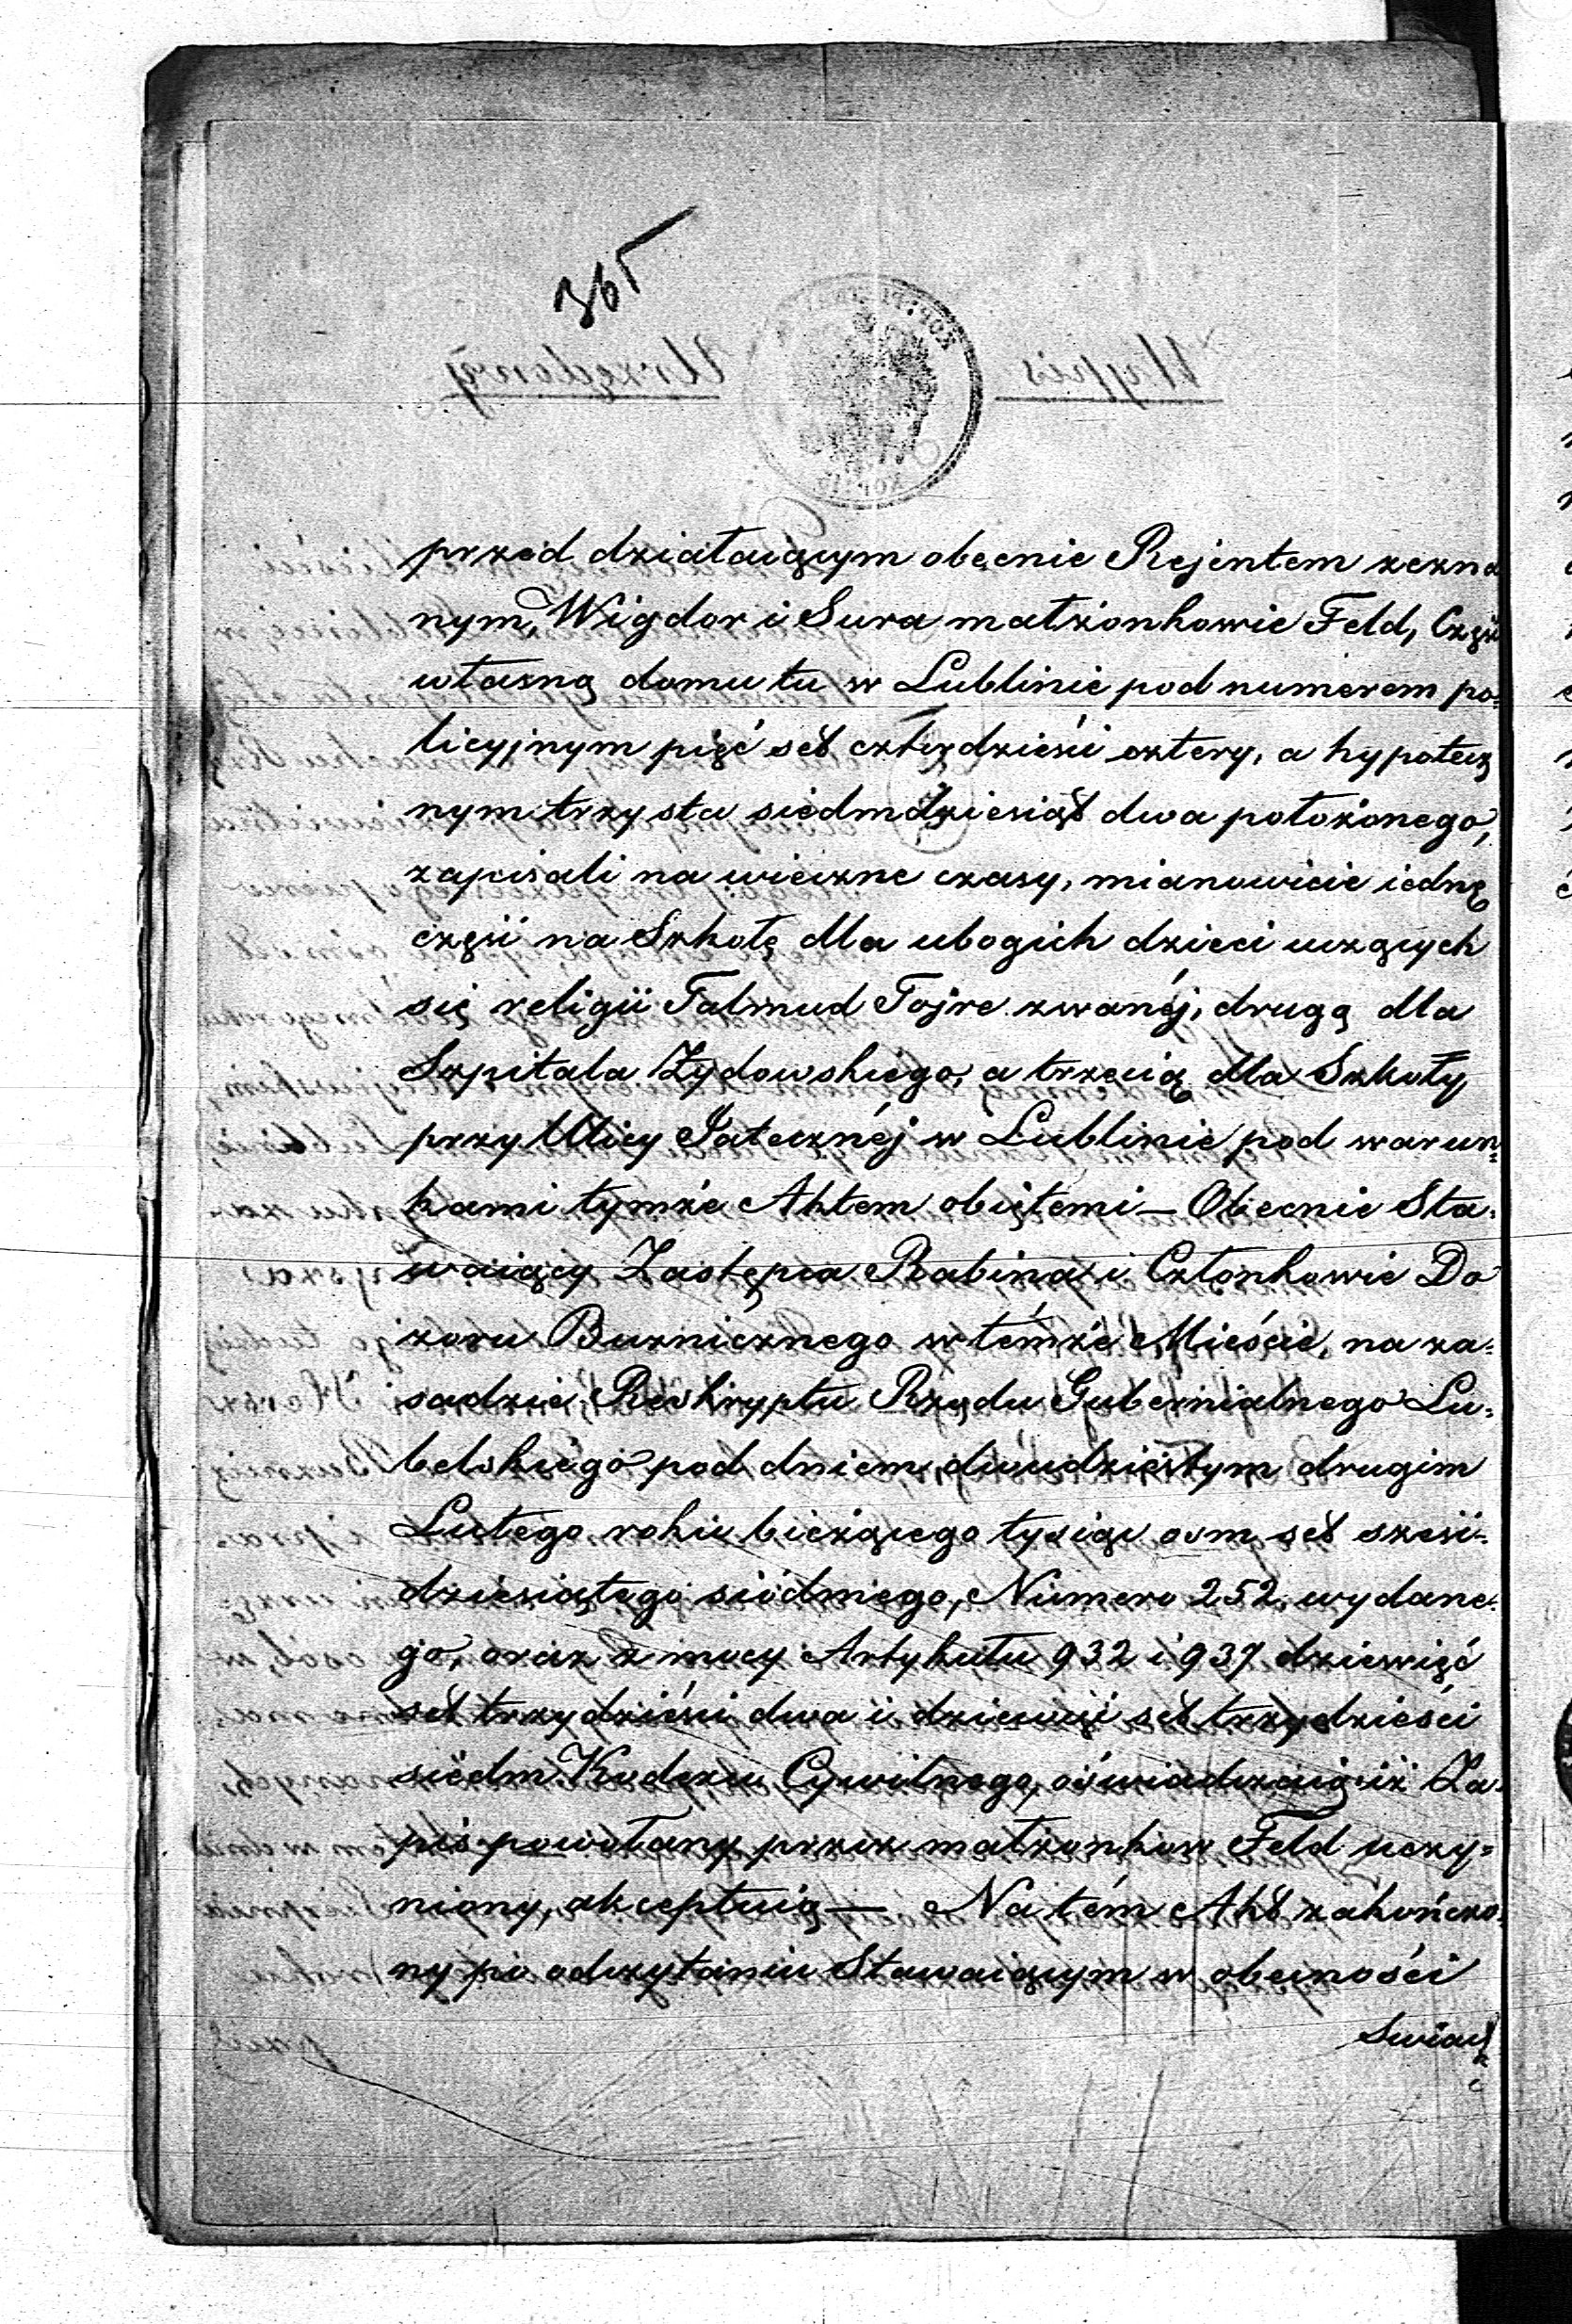 365
przed działaiącym obecnie Rejentem zezna
nym, Wigdor i Sura małżonkowie Feld, Część
własną domu tu w Lublinie pod numerem po-
licyjnym pięć set cztérdzieści cztery, a hypotecz
nym trzysta siedmdziesiąt dwa położonego,
zapisali na wieczne czasy, mianowicie iednę
część na Szkołę dla ubogich dzieci uczących
się religii Talmud Tojre zwanéj, drugą dla
Szpitala Żydowskiego, a trzecią dla Szkoły
przy Ulicy Jatecznéj w Lublinie pod warun-
kami tymże Aktem obiętemi — Obecnie Sta-
waiący Zastępca Rabina i Członkowie Do
zoru Buzniczneg​o w témże Mieście, na za-
sadzie Reskryptu Rządu Gubernialnego Lu-
belskiego pod dniem dwudziestym drugim
Lutego roku bieżącego tysiąc osm set sześć-
dziesiątego siódmego, Numero 252, wydane-
go, oraz z mocy Artykułu 932 i 937 dziewięć
set trzydzieści dwa i dziewięć set trzydzieści
siedm Kodexu Cywilnego, oświadczaią iż Za-
pis powołany przez małżonkow Feld uczy-
niony, akceptuią — Na tém Akt zakończo-
ny po odczytaniu Stawaiącym w obecności